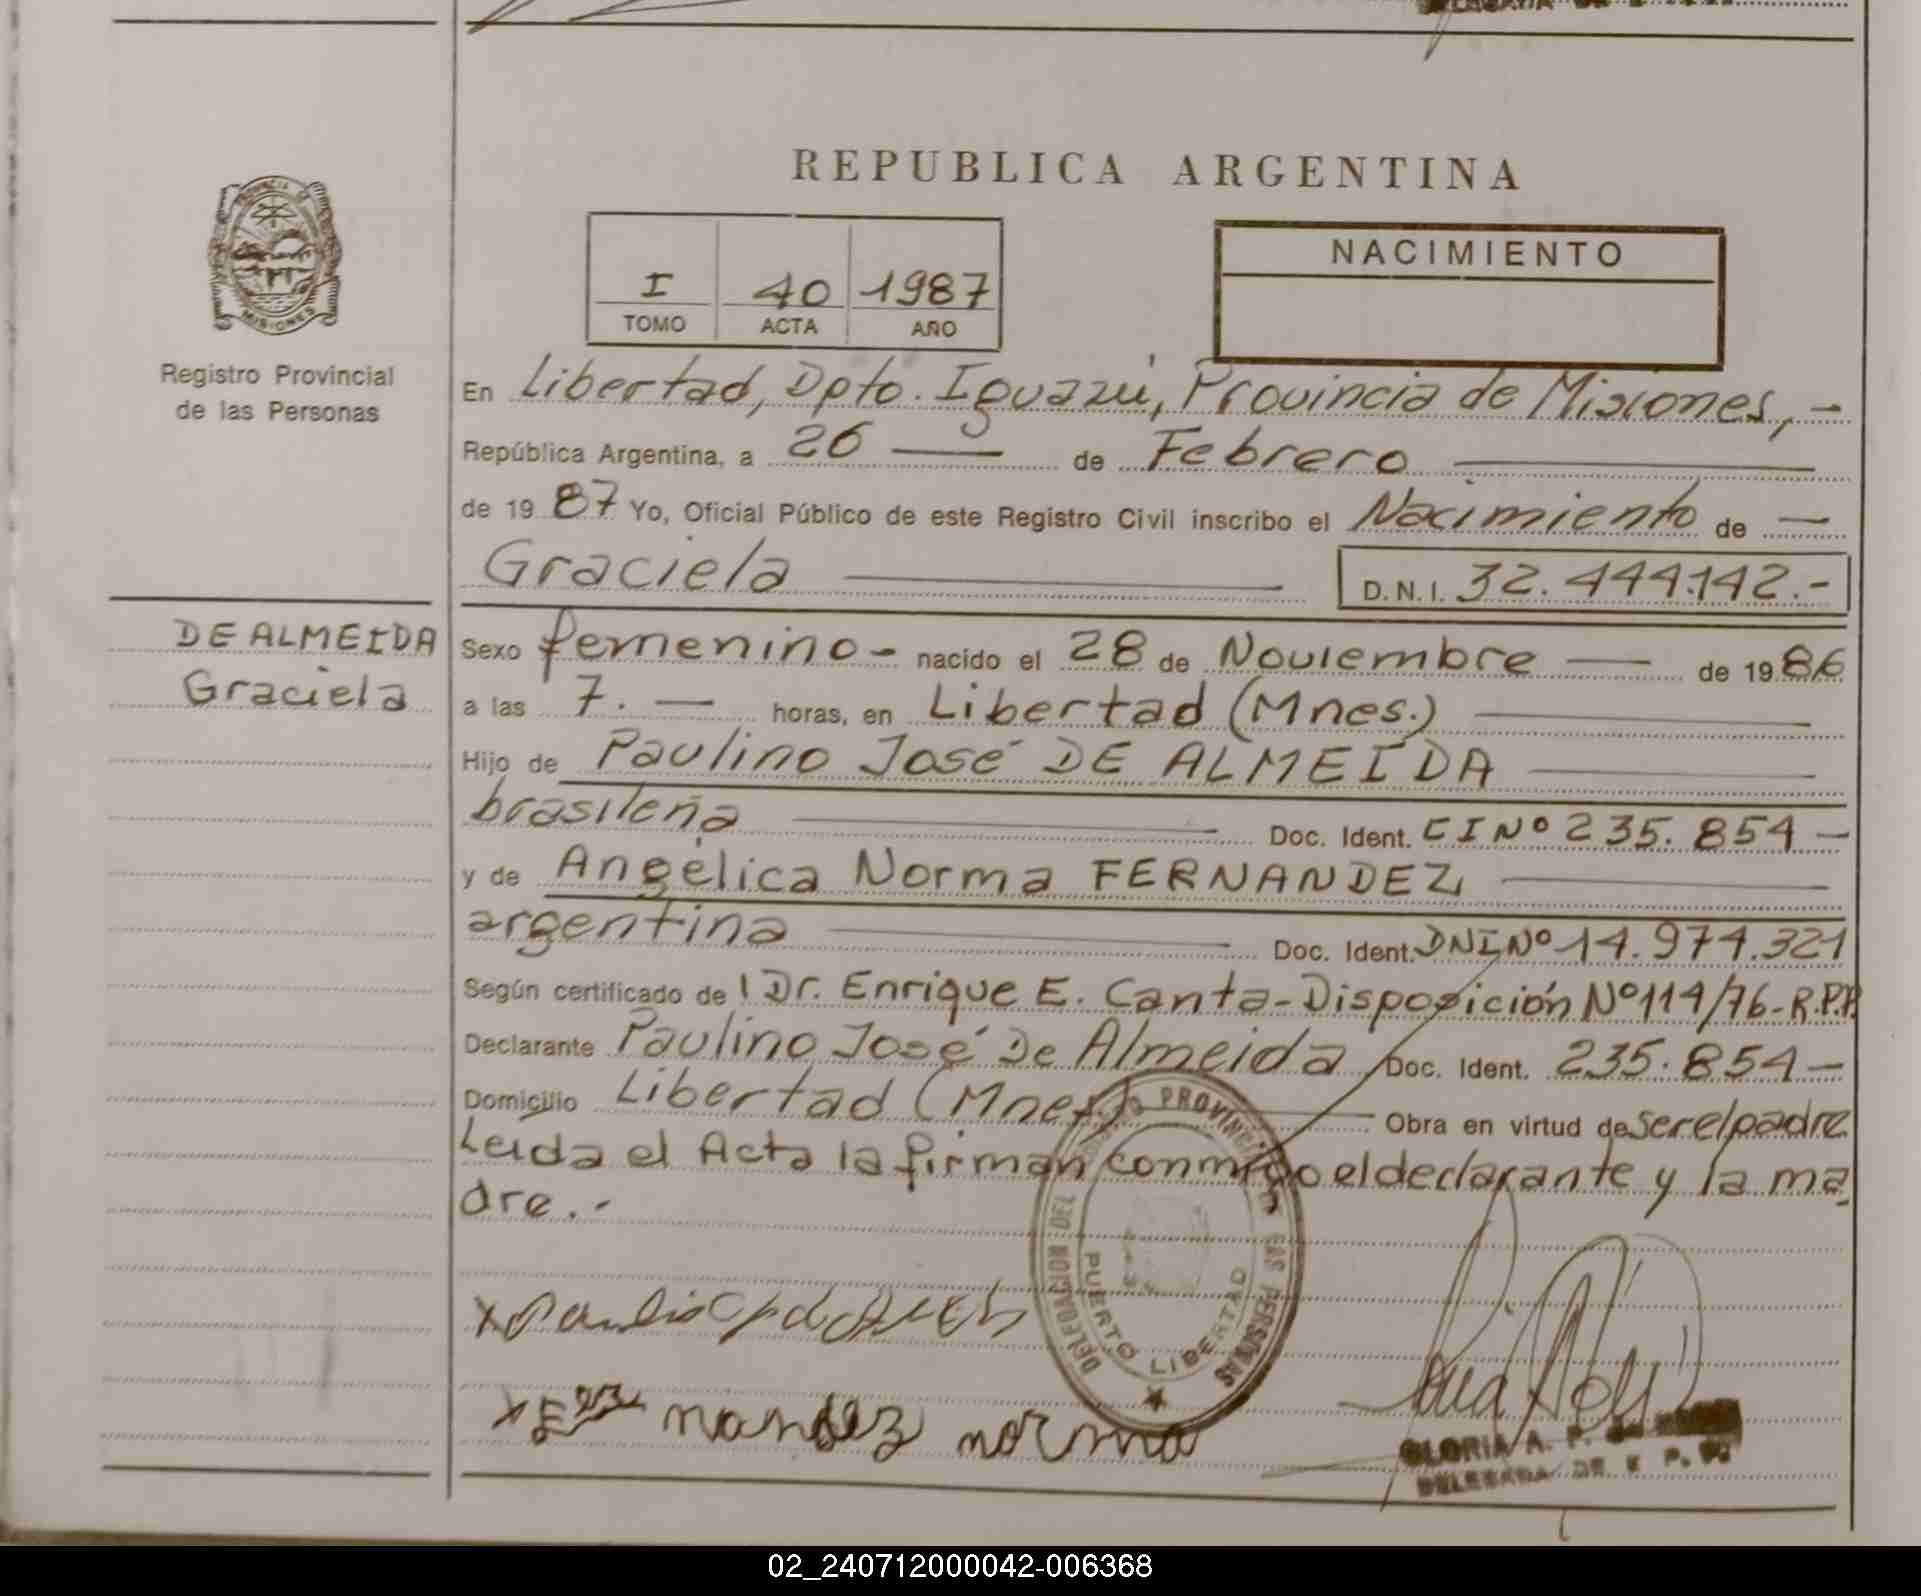 REPUBLICA ARGENTINA
PROVINCIA DE MISIONES
Registro Provincial
de las Personas
I 40 1987
TOMO ACTA AÑO
NACIMIENTO
En Libertad, Dpto. Iguazú, Provincia de Misiones, -
República Argentina, a 26 de Febrero
de 1987 Yo, Oficial Público de este Registro Civil inscribo el Nacimiento de
Graciela D.N.I. 32.444.142.-
DE ALMEIDA
Graciela
Sexo femenino - nacido el 28 de Noviembre de 1986
a las 7. horas, en Libertad (Mnes.)
Hijo de Paulino José DE ALMEIDA
brasileña Doc. Ident. CI Nº 235.854 -
y de Angélica Norma FERNANDEZ
argentina Doc. Ident. DNI Nº 14.974.321
Según certificado de l Dr. Enrique E. Canta - Disposición Nº 114/76 - R.P.P.
Declarante Paulino José De Almeida Doc. Ident. 235.854 -
Domicilio Libertad (Mnes.) Obra en virtud de ser el padre
Leida el Acta la firman conmigo el declarante y la ma
dre.-
DELEGACION DEL REGISTRO PROVINCIAL DE LAS PERSONAS
PUERTO LIBERTAD
nandez norma
GLORIA A. P. de
DELEGADA DE R. P. P.
02_240712000042-006368